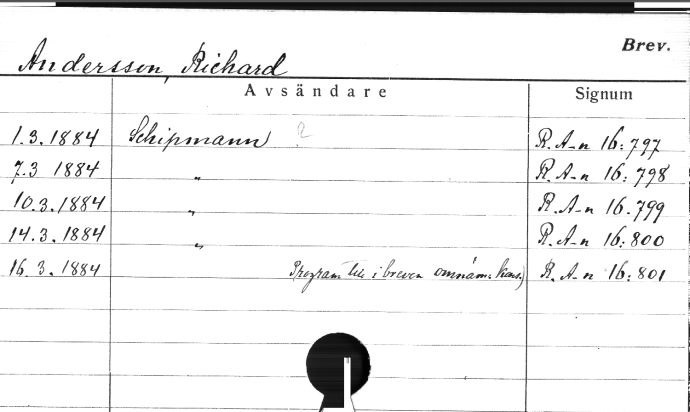 Brev.
Andersson, Richard
Avsändare Signum
1.3.1884 Schipmann ? R.A-n 16:797
7.3 1884 " R.A-n 16:798
10.3.1884 " R.A-n 16.799
14.3.1884 " R.A-n 16:800
16.3.1884 Program till i breven omnäm. kons.) R.A-n 16:801